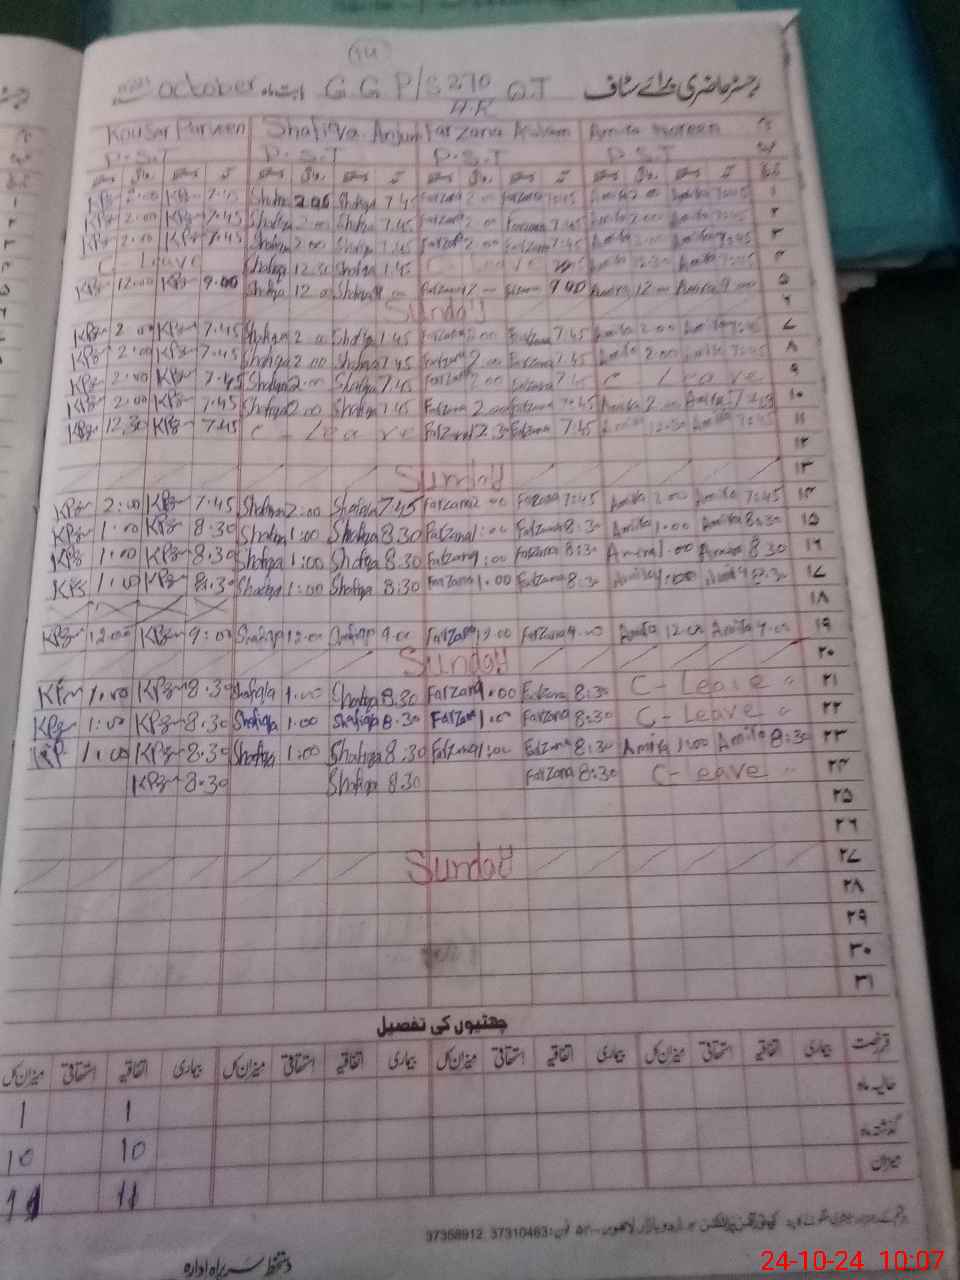 14
رجسٹر حاضری برائے سٹاف G.G.P/S 270 Q.T بابت ماہ October
H.R
Kousar Parveen Shafiqa Anjum Farzana Amita Noreen
P.S.T P.S.T P.S.T P.S.T
KPz 2:00 KPz 7:45 Shafiqa 2:00 Shafiqa 7:45 Farzana 2:00 Farzana 7:45 Amita 2:00 Amita 7:45 ۱
KPz 2:00 KPz 7:45 Shafiqa 2:00 Shafiqa 7:45 Farzana 2:00 Farzana 7:45 Amita 2:00 Amita 7:45 ۲
KPz 2:00 KPz 7:45 Shafiqa 2:00 Shafiqa 7:45 Farzana 2:00 Farzana 7:45 Amita 2:00 Amita 7:45 ۳
C- Leave Shafiqa 12:30 Shafiqa 7:45 C- Leave Amita 12:30 Amita 7:45 ۴
KPz 12:00 KPz 9:00 Shafiqa 12:00 Shafiqa 9:00 Farzana 12:00 Farzana 9:00 Amita 12:00 Amita 9:00 ۵
Sunday ۶
KPz 2:00 KPz 7:45 Shafiqa 2:00 Shafiqa 7:45 Farzana 2:00 Farzana 7:45 Amita 2:00 Amita 7:45 ۷
KPz 2:00 KPz 7:45 Shafiqa 2:00 Shafiqa 7:45 Farzana 2:00 Farzana 7:45 Amita 2:00 Amita 7:45 ۸
KPz 2:00 KPz 7:45 Shafiqa 2:00 Shafiqa 7:45 Farzana 2:00 Farzana 7:45 C Leave ۹
KPz 2:00 KPz 7:45 Shafiqa 2:00 Shafiqa 7:45 Farzana 2:00 Farzana 7:45 Amita 2:00 Amita 7:45 ۱۰
KPz 12:30 KPz 7:45 C - Leave Farzana 12:30 Farzana 7:45 Amita 12:30 Amita 7:45 ۱۱
۱۲
Sunday ۱۳
KPz 2:00 KPz 7:45 Shafiqa 2:00 Shafiqa 7:45 Farzana 2:00 Farzana 7:45 Amita 2:00 Amita 7:45 ۱۴
KPz 1:00 KPz 8:30 Shafiqa 1:00 Shafiqa 8:30 Farzana 1:00 Farzana 8:30 Amita 1:00 Amita 8:30 ۱۵
KPz 1:00 KPz 8:30 Shafiqa 1:00 Shafiqa 8:30 Farzana 1:00 Farzana 8:30 Amita 1:00 Amita 8:30 ۱۶
KPz 1:00 KPz 8:30 Shafiqa 1:00 Shafiqa 8:30 Farzana 1:00 Farzana 8:30 Amita 1:00 Amita 8:30 ۱۷
۱۸
KPz 12:00 KPz 9:00 Shafiqa 12:00 Shafiqa 9:00 Farzana 12:00 Farzana 9:00 Amita 12:00 Amita 9:00 ۱۹
Sunday ۲۰
KPz 1:00 KPz 8:30 Shafiqa 1:00 Shafiqa 8:30 Farzana 1:00 Farzana 8:30 C-Leave ۲۱
KPz 1:00 KPz 8:30 Shafiqa 1:00 Shafiqa 8:30 Farzana 1:00 Farzana 8:30 C-Leave ۲۲
KP 1:00 KPz 8:30 Shafiqa 1:00 Shafiqa 8:30 Farzana 1:00 Farzana 8:30 Amita 1:00 Amita 8:30 ۲۳
KPz 8:30 Shafiqa 8:30 Farzana 8:30 C-Leave ۲۴
۲۵
۲۶
Sunday ۲۷
۲۸
۲۹
۳۰
۳۱
چھٹیوں کی تفصیل
قسم رخصت بیماری اتفاقیہ استحقاقی میزان کل بیماری اتفاقیہ استحقاقی میزان کل بیماری اتفاقیہ استحقاقی میزان کل بیماری اتفاقیہ استحقاقی میزان کل
حالیہ ماہ 1 1
گذشتہ ماہ 10 10
میزان 11 11
37358912 37310463
دستخط سربراہ ادارہ
24-10-24 10:07